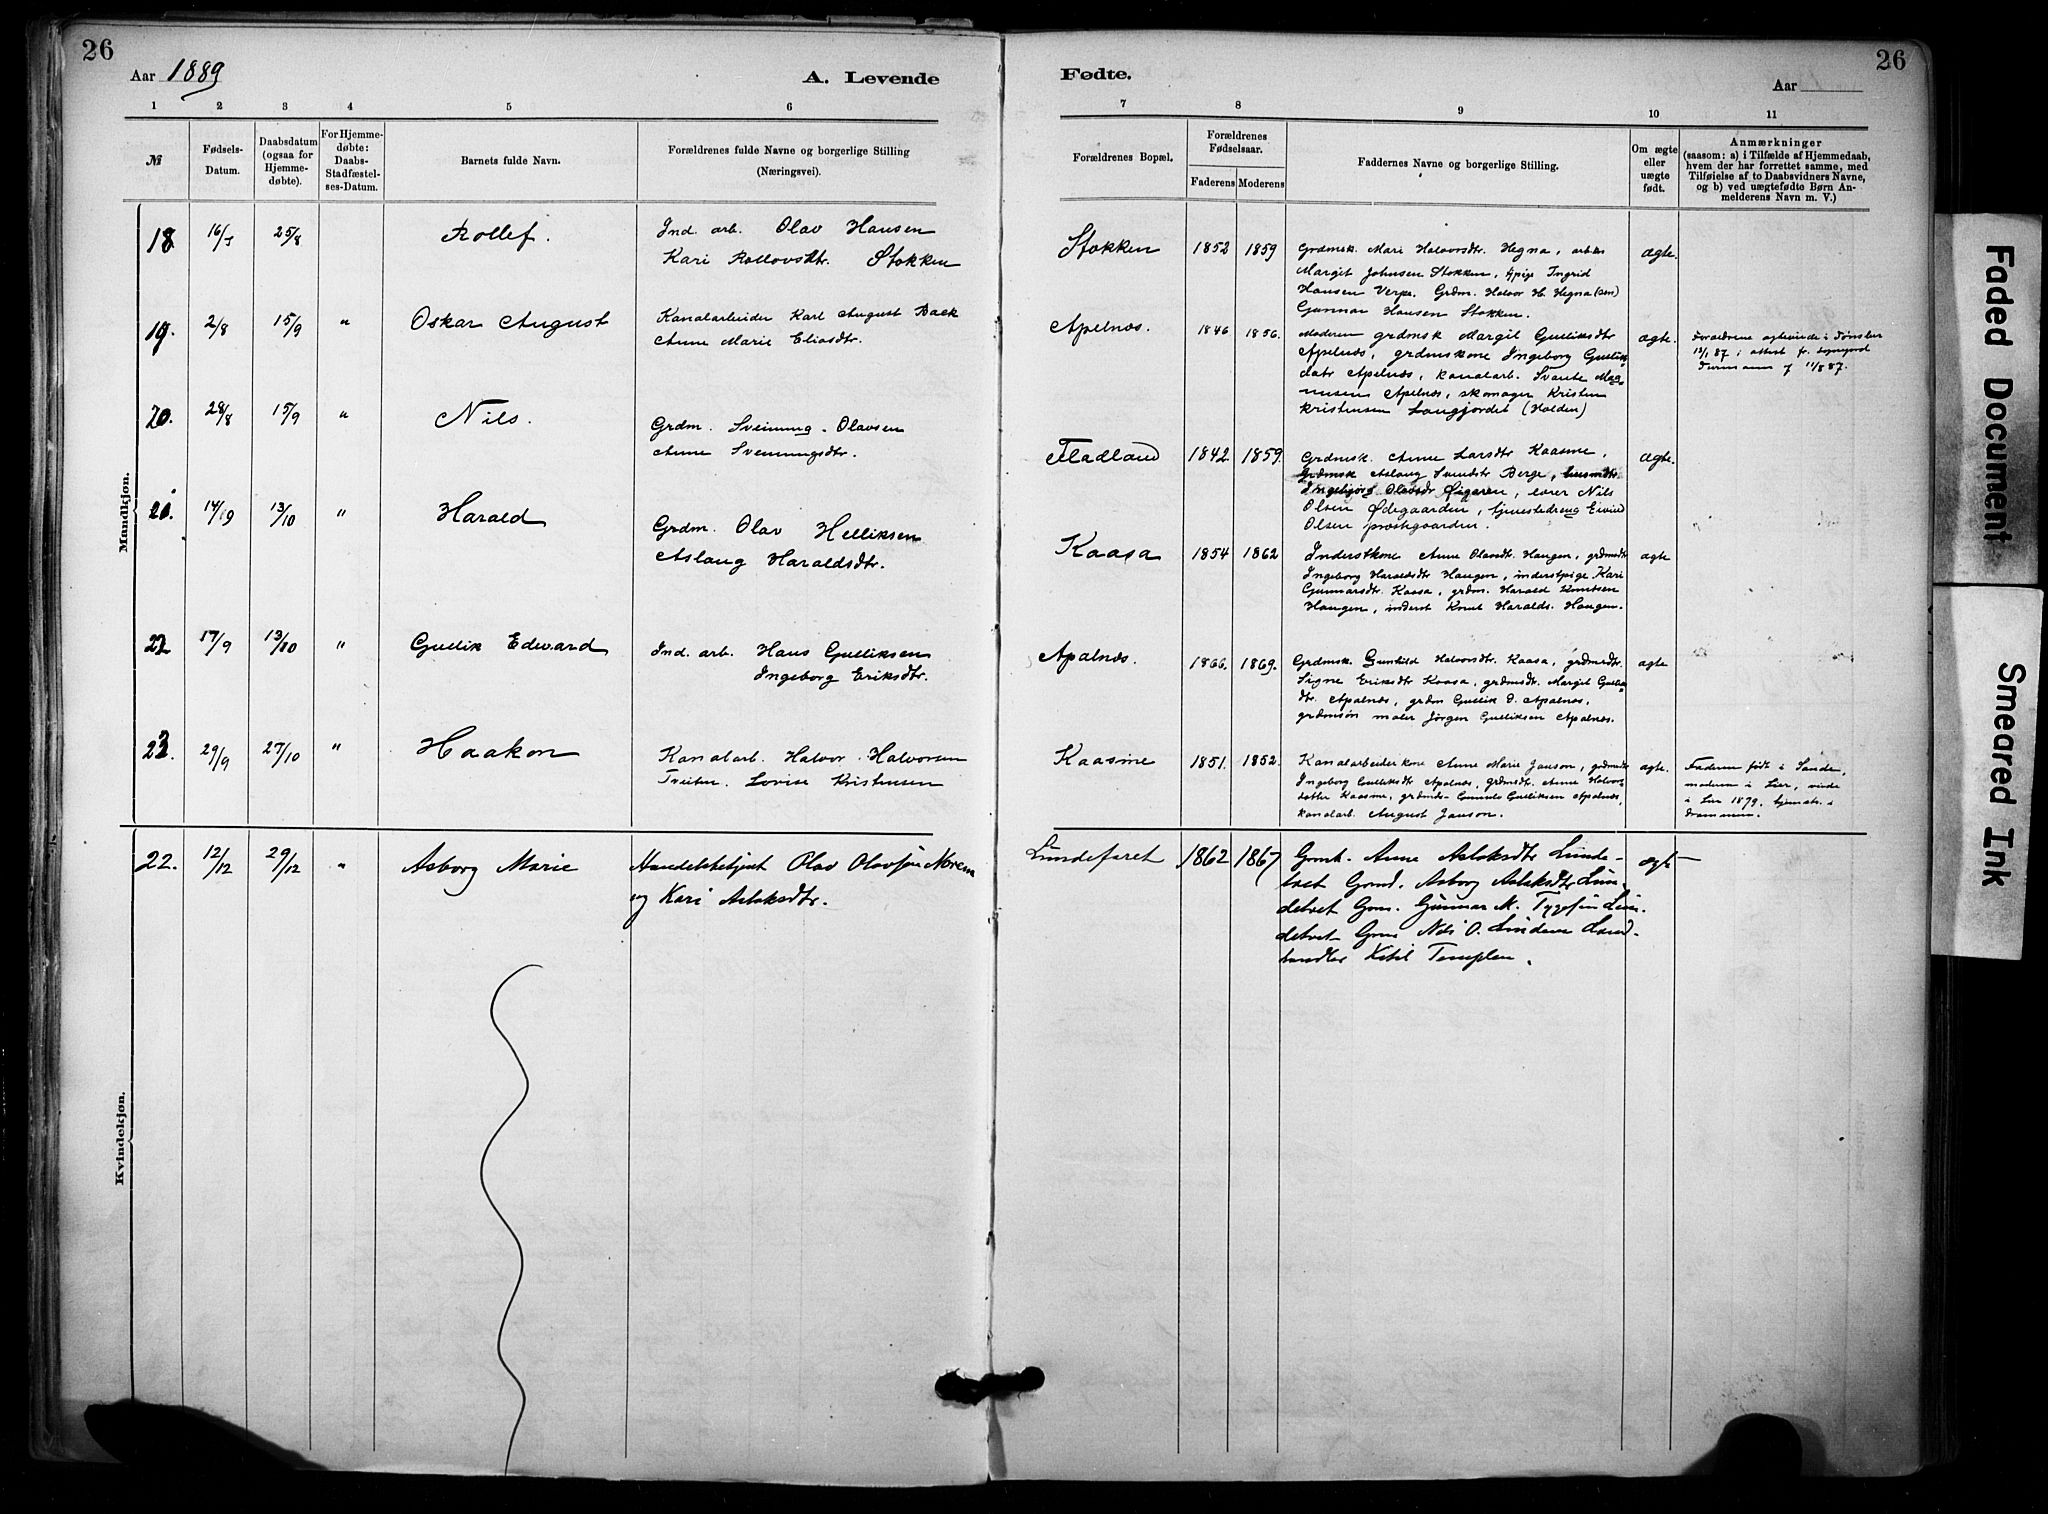 26
Aar 1889
A. Levende
Fødte.
Aar
26
1 2 3 4 5 6 7 8 9 10 11
№
Fødsels-
Datum.
Daabsdatum
(ogsaa for
Hjemme-
døbte).
For Hjemme-
døbte:
Daabs-
Stadfæstel-
ses-Datum.
Barnets fulde Navn.
Forældrenes fulde Navne og borgerlige Stilling
(Næringsvei).
Forældrenes Bopæl.
Forældrenes
Fødselsaar.
Faderens Moderens
Faddernes Navne og borgerlige Stilling.
Om ægte
eller
uægte
født.
Anmærkninger
(saasom: a) i Tilfælde af Hjemmedaab,
hvem der har forrettet samme, med
Tilføielse af to Daabsvidners Navne,
og b) ved uægtefødte Børn An-
melderens Navn m. V.)
Mandkjøn.
18. 25/8 Rollef. Ind. arb. Olav Hansen
Kari Rollovsdtr. Stokken
Stokken 1852 1859 Grdmsk. Mari Halvorsdtr. Hegna,
Margit Johnsen Stokken, tpige Ingrid
Hansen Verpe. Grdm. Halvor H. Hegna
Gunnar Hansen Stokken.
ægte.
19. 2/8 15/9 " Oskar August Kanalarbeider Karl August Back
Anne Marie Eliasdtr.
Apelnæs. 1846 1856. Moderen grdmsk Margit Gulliksdtr
Apelnæs, grdmskone Ingeborg Gulliks
datr Apelnæs, kanalarb. Svante Mag-
nusen Apelnæs, skomager Kristen
Kristensen Langjordet (Holden)
ægte. Forældrene ægteviede i Tønsberg
i attest fr. sogneprd
11/8 87.
20. 28/8 15/9 " Nils. Grdm. Sveinung Olavsen
Anne Sveinungsdtr.
Fladland 1842 1859. Grdmsk. Anne Larsdtr Kaasme,
Grdmsk Aslaug Berge,
Ingebjørg Olavsdr Øigaren, lærer Nils
Olsen Ødegaarden, tjenestedreng Eivind
Olsen præstgaarden.
ægte.
21. 14/9 13/10 " Harald Grdm. Olav Helliksen
Aslaug Haraldsdtr.
Kaasa 1854 1862 Inderstkone Anne Olavsdt. Haugen, grdmsdtr
Ingeborg Haraldsdtr Haugen, inderstpige Kari
Gunnarsdtr. Kaasa, grdm. Harald Knutsen
Haugen, inderst Knut Haralds. Haugen.
ægte
22 17/9 13/10 " Gullik Edward Ind. arb. Hans Gulliksen
Ingeborg Eriksdtr.
Apalnæs. 1866. 1869. Grdmsk. Gunhild Halvorsdtr. Kaasa, grdmsdtr.
Signe Eriksdtr Kaasa, grdmsdt. Margit Gulliks
dtr. Apalnæs, grdm Gullik D. Apalnæs,
grdmsøn maler Jørgen Gulliksen Apalnæs.
ægte
23. 29/9 27/10 " Haakon Kanalarb. Halvor Halvorsen
Tveiten. Lovise Kristensen
Kaasme 1851. 1852. Kanalarbeiderkone Anne Marie Janson, grdmsdt
Ingeborg Gulliksdtr Apalnæs, grdmsdt. Anne Halvors
datter Kaasme, grdmds- Gulliksen Apalnæs,
kanalarb. August Janson.
ægte. Faderen født i Sande,
moderen i Lier, viede
i Lier 1879, i
Drammen.
Kvindekjøn.
22. 12/12 29/12 " Asborg Marie Handelsbetjent Olav Olavsøn Noreen
og Kari Aslaksdtr.
Lundefaret 1862 1867 Gmk. Anne Aslaksdtr Lunde-
tvet Gmd. Asborg Aslaksdtr Lun-
detvet Gm. Gunnar M. Lun-
detvet O. Lindem Land-
handler Kitil Templen.
ægte
Faded Document
Smeared Ink